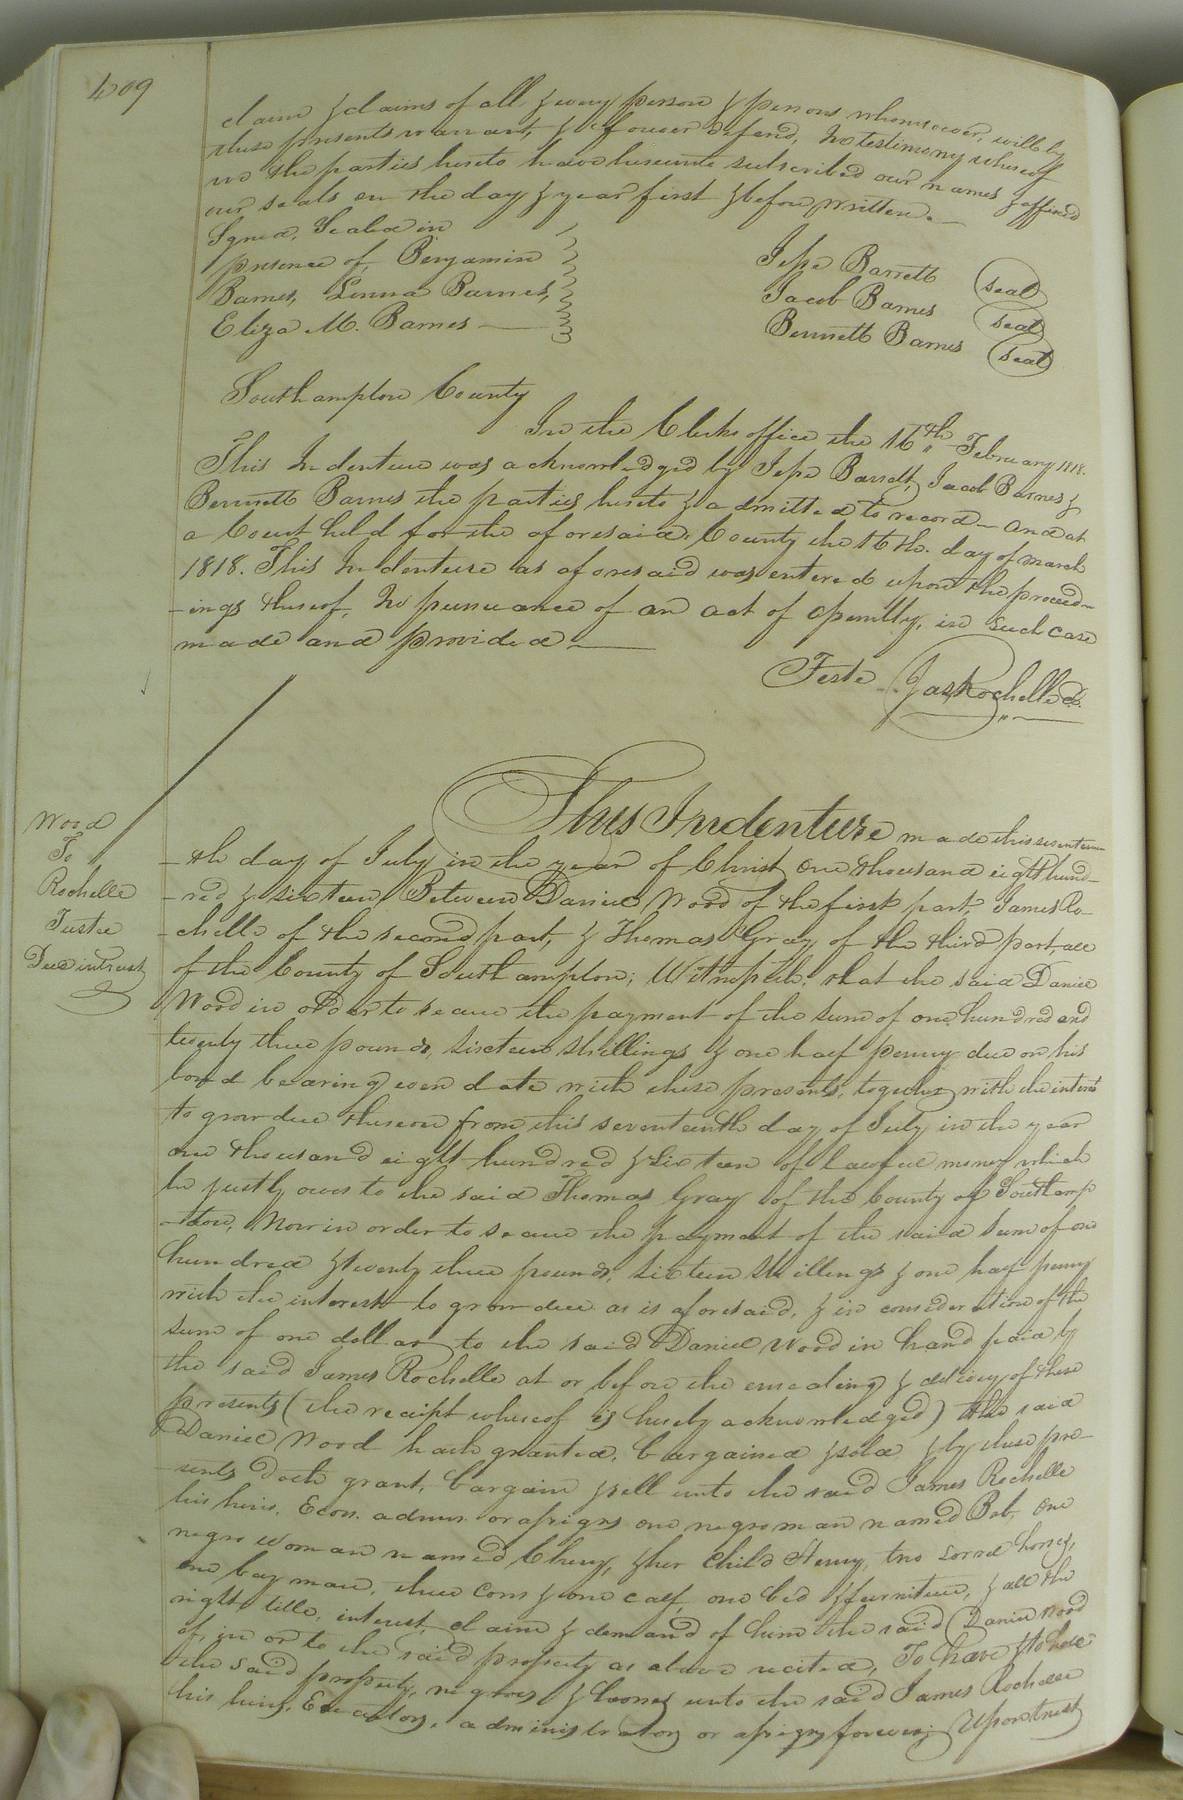 409
claim & claims of all & every person & persons whomsoever, will by
these presents warrant, & forever defend, In testimony whereof
we the parties hereto have hereunto subscribed our names & affixed
our seals on the day & year first & before written.
Signed, Sealed in
presence of, Benjamin
Barnes, Lenna Barnes,
Eliza M. Barnes
Jesse Barrett seal
Jacob Barnes seal
Bennett Barnes seal
Southampton County
In the Clerks office the 16th February 1818.
This Indenture was acknowledged by Jesse Barrett, Jacob Barnes &
Bennett Barnes the parties hereto & admitted to record - And at
a Court held for the aforesaid County the 16th. day of March
1818. This Indenture as aforesaid was entered upon the proceed-
-ings thereof, In pursuance of an act of assembly, in such case
made and provided
Teste Jas Rochelle C.
Wood
To
Rochelle
Trustee
Deed in trust
This Indenture made this seventeen
-th day of July in the year of Christ one thousand eight hund-
-red & sixteen Between Daniel Wood of the first part, James Ro-
-chelle of the second part, & Thomas Gray of the third part, all
of the County of Southampton; Witnesseth: that the said Daniel
Wood in order to secure the payment of the sum of one hundred and
twenty three pounds, sixteen shillings & one half penny due on his
bond bearing even date with these presents, together with the interest
to grow due thereon from this seventeenth day of July in the year
one thousand eight hundred & sixteen of lawful money which
he justly owes to the said Thomas Gray of the County of Southamp
-ton, Now in order to secure the payment of the said sum of one
hundred & twenty three pounds, sixteen shillings & one half penny
with the interest to grow due as is aforesaid, & in consideration of the
sum of one dollar to the said Daniel Wood in hand paid by
the said James Rochelle at or before the ensealing & delivery of these
presents (the receipt whereof is hereby acknowledged) the said
Daniel Wood hath granted, bargained & sold & by these pre-
-sents doth grant, bargain & sell unto the said James Rochelle
his heirs, Exors. admrs. or assigns one negro man named Bob, one
negro woman named Chery, & her child Henry, two sorrel horses,
one bay mare, three cows & one calf, one bed & furniture, & all the
right, title, interest, claim & demand of him the said Daniel Wood
of, in or to the said property as above recited, To have & to hold
the said property, negroes & horses unto the said James Rochelle
his heirs, Executors, administrators or assigns forever; Upon trust